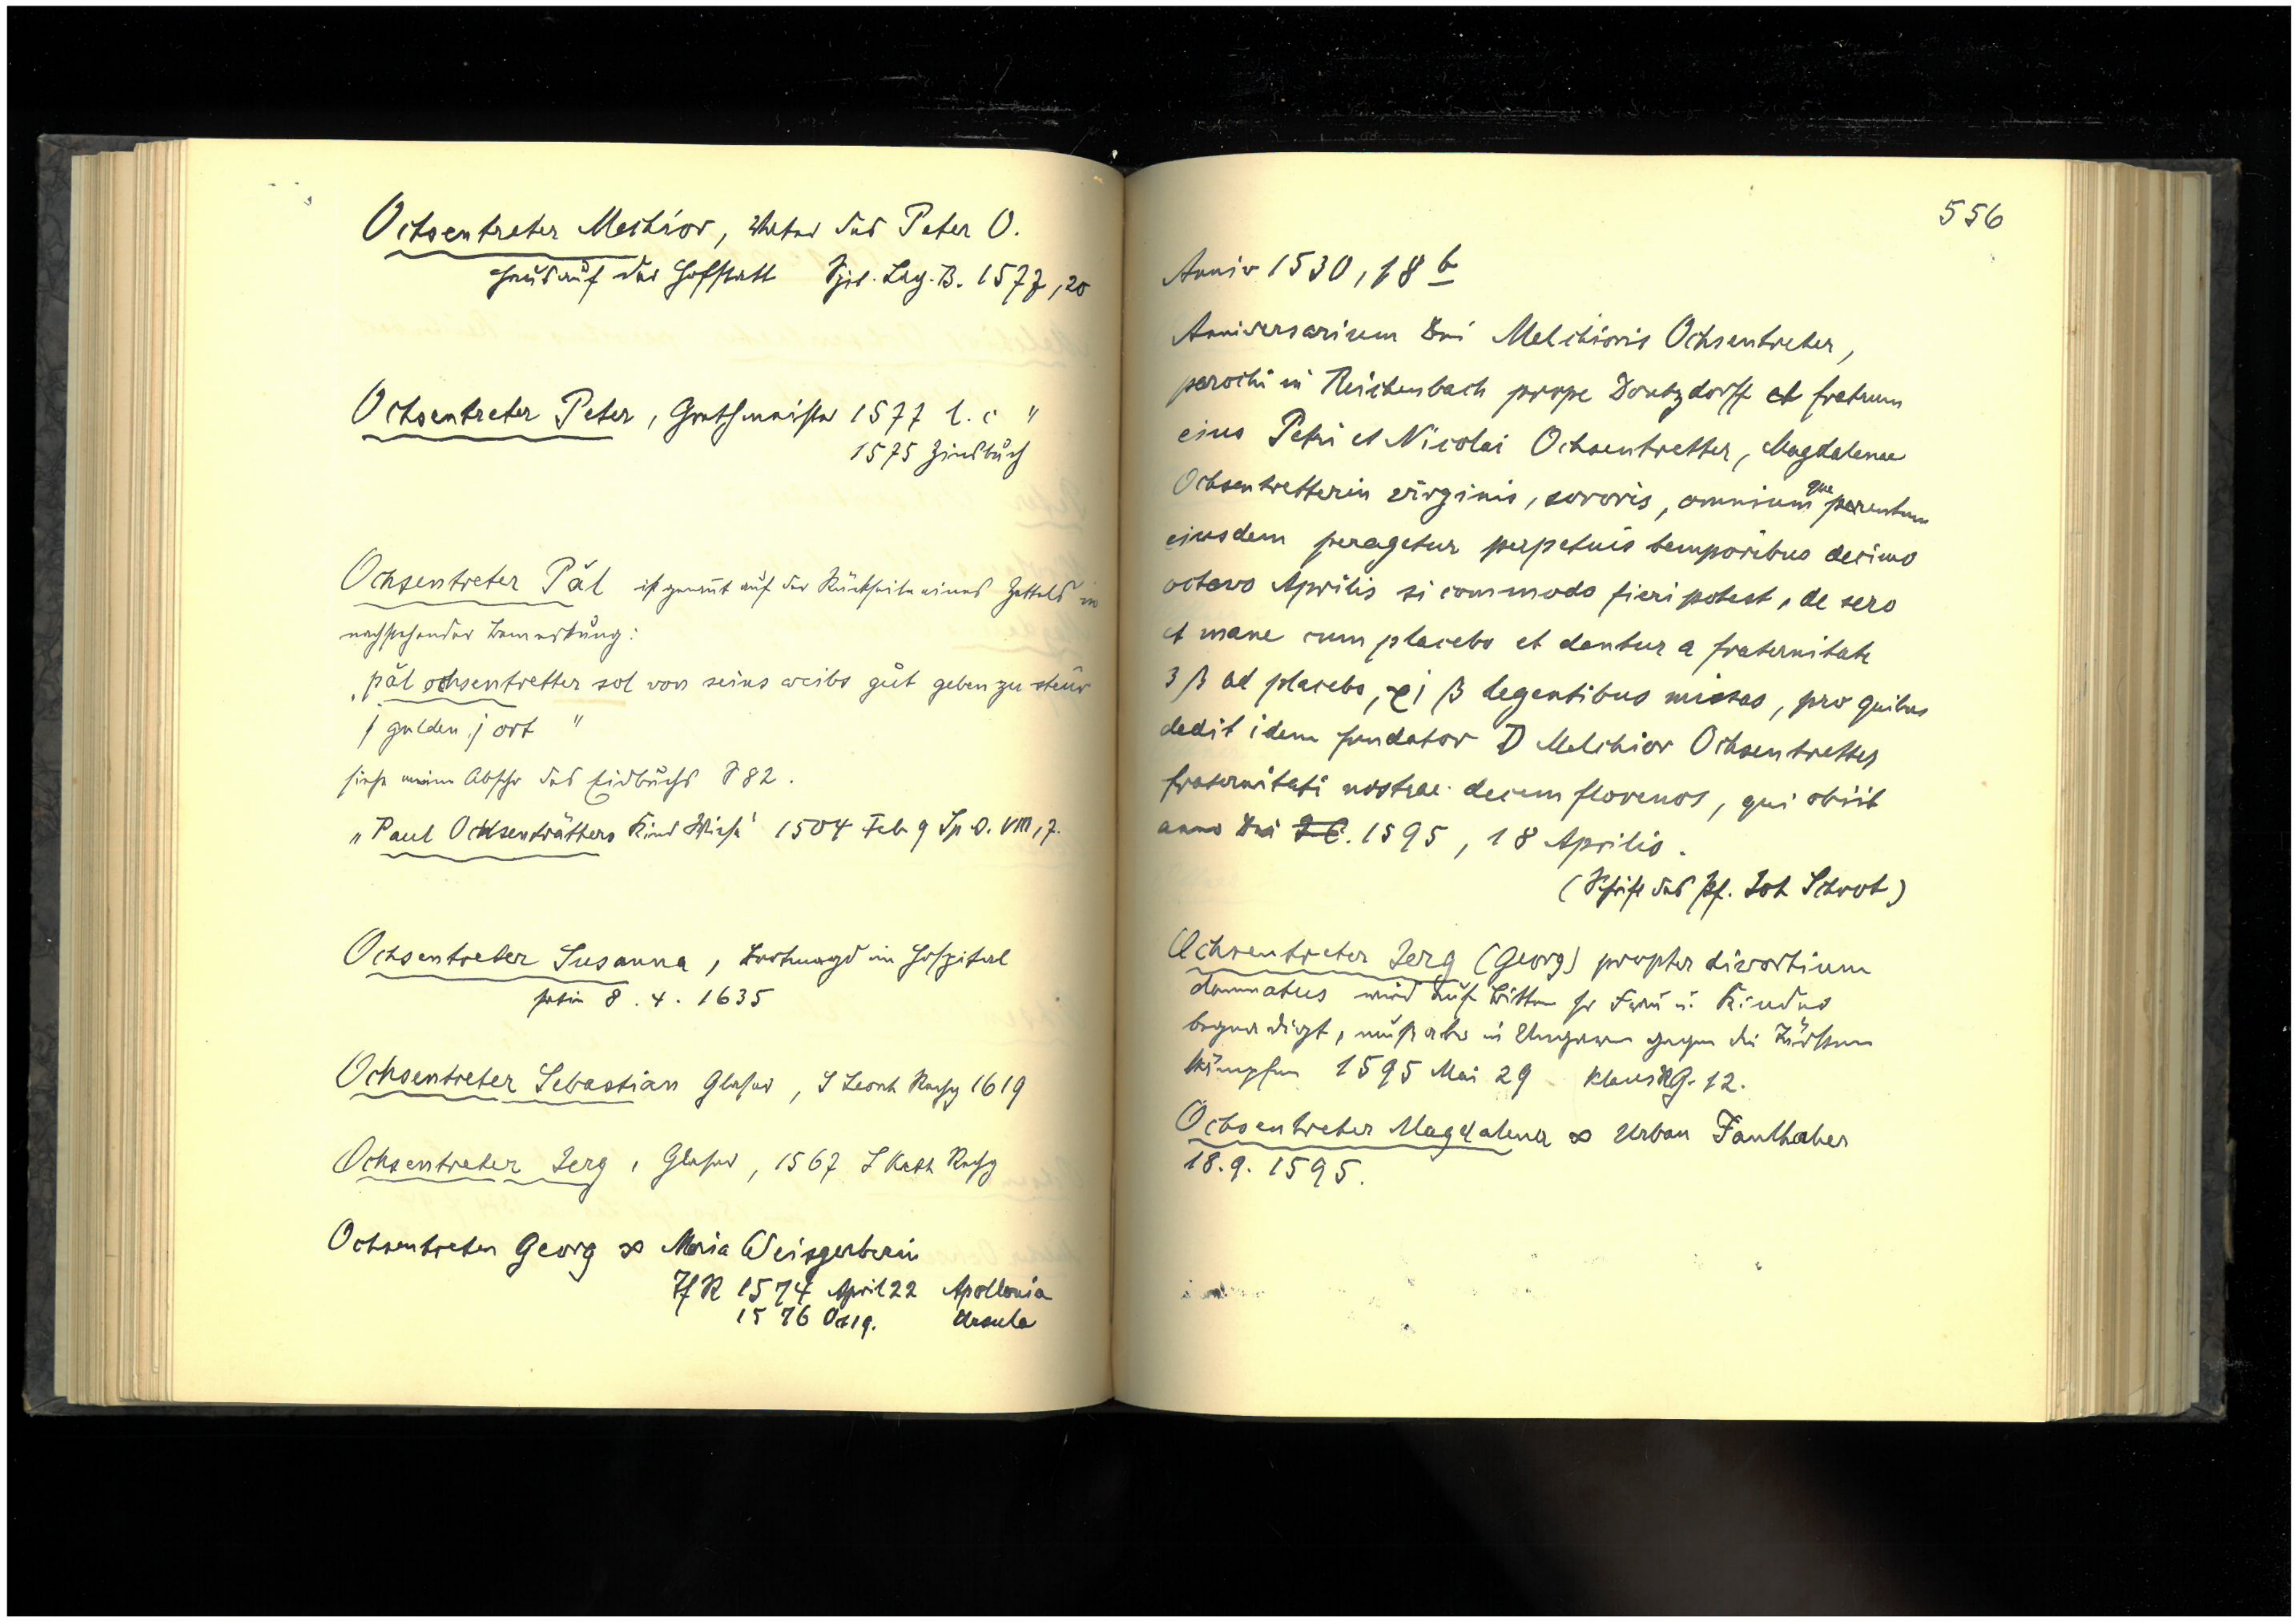 Ochsentreter Melchior, Vater des Peter O.
Haus auf der Hofstatt Spit. Lag. B. 1577, 20
Ochsentreter Peter, 1577 l. c "
1575 Zinsbuch
Ochsentreter Päl ist genannt auf der Rückseite eines Zettels in
nachstehender Bemerkung:
"päl ochsentretter sol von seins weibs gůt geben zu steur
j gulden j ort "
siehe meine Abschr des Eidbuchs S 82.
"Paul Ochsenträtters Kind Wiese" 1504 Feb 9 Sp. O. VIII, 7.
Ochsentreter Susanna, im Hospital
8. 4. 1635
Ochsentreter Sebastian Glaser, S Leonh Rechg 1619
Ochsentreter Jerg, Glaser, 1567 S Kath Rechg
Ochsentreter Georg ∞ Maria Weisgerberin
Tf R 1574 April 22 Apollonia
1576 Oct 19. Ursula
556
Anniv 1530, 18 b
Anniversarium Dni Melchioris Ochsentreter,
parochi in Reichenbach prope Dontzdorff et fratrum
eius Petri et Nicolai Ochsentretter, Magdalenae
Ochsentretterin virginis, sororis, omnium que parentum
eiusdem peragetur perpetuis temporibus decimo
octavo Aprilis si commodo fieri potest, de sero
et mane cum placebo et dantur a fraternitate
3 ß ad placebo, xj ß legentibus missas, pro quibus
dedit idem fundator D Melchior Ochsentretter
fraternitati nostrae decem florenos, qui obiit
anno Dni 1595, 18 Aprilis.
(Schrift des Pf. Joh Schrot)
Ochsentreter Jerg (Georg) propter divortium
damnatus wird auf Bitten sr Frau u. Kinder
begnadigt, muß aber in Ungarn gegen die Türken
kämpfen 1595 Mai 29 Klaus RG. 12.
Ochsentreter Magdalena ∞ Urban Faulhaber
18. 9. 1595.